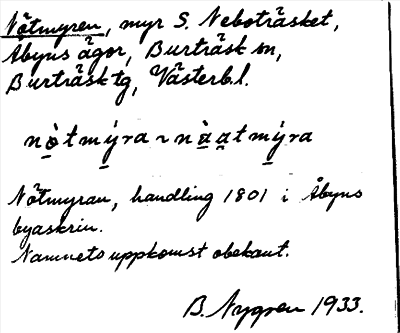 Nötmyren, myr S. Neboträsket,
Åbyns ägor, Burträsk sn,
Burträsk tg, Västerb.l.
nò̱tmý̱ra ~ nà̱a̱tmý̱ra
Nötmyran, handling 1801 i Åbyns
byaskrin.
Namnets uppkomst obekant.
B. Nygren 1933.